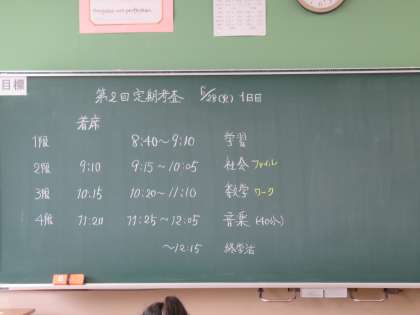 目標
第2回定期考査 6/28(火) 1日目
着席
1限 8:40～9:10 学習
2限 9:10 9:15～10:05 社会 ファイル
3限 10:15 10:20～11:10 数学 ワーク
4限 11:20 11:25～12:05 音楽 (40分)
～12:15 終学活